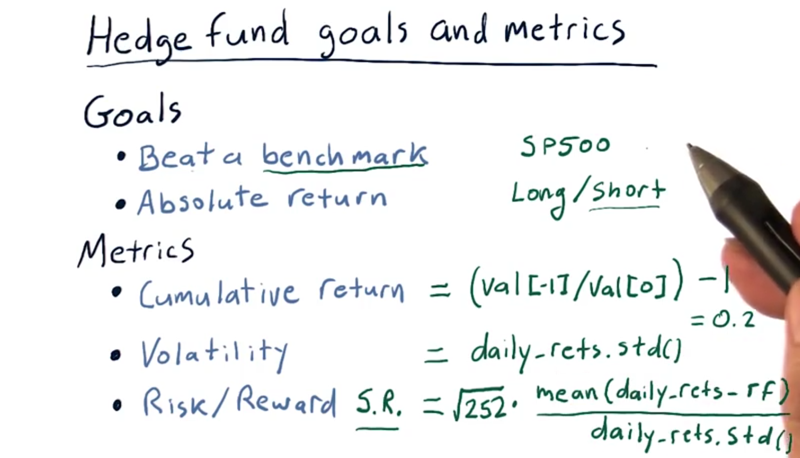 Hedge fund goals and metrics
Goals
• Beat a benchmark SP500
• Absolute return Long/Short
Metrics
• Cumulative return = (val[-1]/val[0]) -1
= 0.2
• Volatility = daily_rets.std()
• Risk/Reward S.R. = √252 · mean(daily_rets - rf)
daily_rets.std()